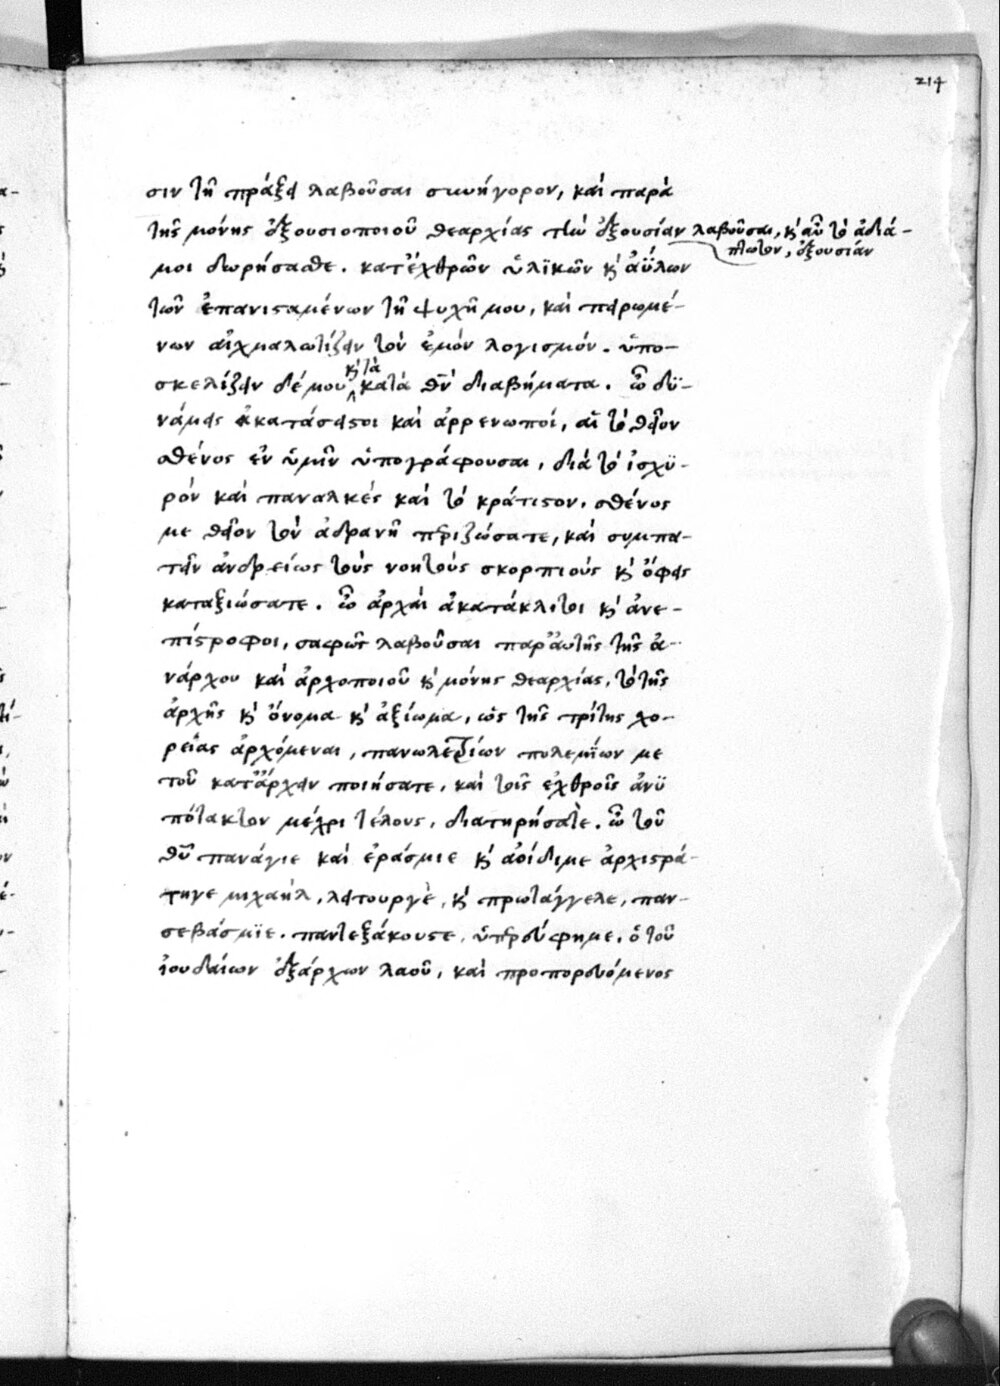 214
σιν τῆ πράξει λαβοῦσαι συνήγορον, καὶ παρὰ
τῆς μόνης ἐξουσιοποιοῦ θεαρχίας τὴν ἐξουσίαν λαβοῦσαι, κ' αὖ τὸ ἀδιά-
πτωτον, ἐξουσίαν
μοι δωρήσασθε. κατ' ἐχθρῶν ὑλϊκῶν κ' ἀΰλων
τῶν ἐπανισταμένων τῆ ψυχῆ μου, καὶ πειρωμέ-
νων αἰχμαλωτίζειν τὸν ἐμὸν λογισμόν. ὑπο-
σκελίζειν δέ μου κ' τὰ κατὰ θν διαβήματα. ὦ δϋ-
νάμεις ἀκατάσειστοι καὶ ἀρρενωποί, αἳ τὸ θεῖον
σθένος ἐν ὑμῖν ὑπογράφουσαι, διὰ τὸ ἰσχϋ-
ρὸν καὶ παναλκὲς καὶ τὸ κράτιστον, σθένος
με θεῖον τὸν ἀδρανῆ περιζώσατε, καὶ συμπα-
τεῖν ἀνδρείως τοὺς νοητοὺς σκορπιοὺς κ' ὄφεις
καταξιώσατε. ὦ ἀρχαὶ ἀκατάκλιτοι κ' ἀνε-
πίστροφοι, σαφῶς λαβοῦσαι παρ' αὐτῆς τῆς ἀ-
νάρχου καὶ ἀρχοποιοῦ κ' μόνης θεαρχίας, τὸ τῆς
ἀρχῆς κ' ὄνομα κ' ἀξίωμα, ὡς τῆς τρίτης χο-
ρείας ἀρχόμεναι, πανωλεθρίων πολεμΐων με
τοῦ κατάρχειν ποιήσατε, καὶ τοῖς ἐχθροῖς ἀνϋ
πότακτον μέχρι τέλους, διατηρήσατε. ὦ τοῦ
θῦ πανάγιε καὶ ἐράσμιε κ' ἀοίδιμε ἀρχιστρά-
τηγε μιχαὴλ, λειτουργὲ, κ' πρωτάγγελε, παν-
σεβάσμϊε. παντεξάκουστε, ὑπερεύφημε, ὁ τοῦ
ἰουδαίων ἐξάρχων λαοῦ, καὶ προπορευόμενος